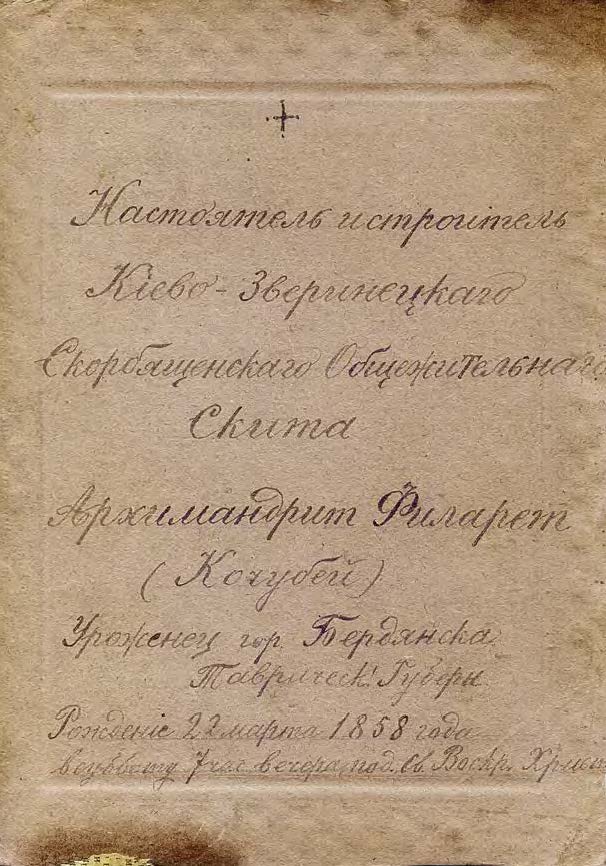 Настоятель и строитель
Кіево-Зверинецкаго
Скорбященскаго Общежительнаго
Скита
Архимандрит Филарет
(Кочубей)
Уроженец гор. Бердянска
Таврическ. Губерн
Рожденіе 22 марта 1858 года
в субботу 7 час вечера под. Св. Воскр. Христ